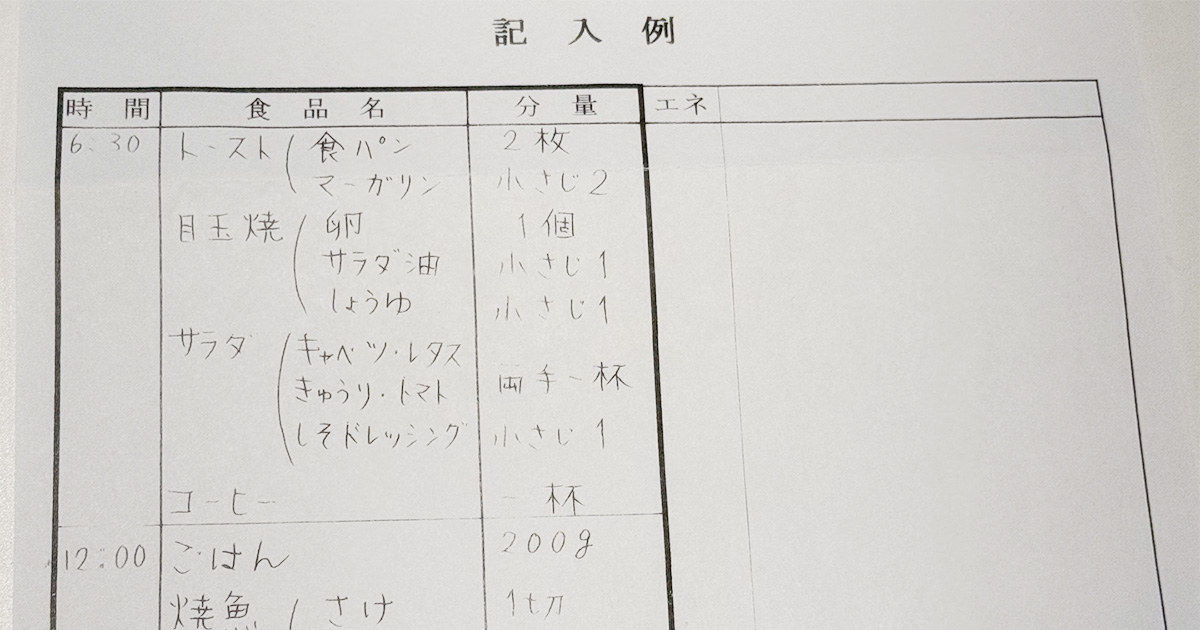 記入例
時間 食品名 分量 エネ
6.30 トースト 食パン 2枚
マーガリン 小さじ2
目玉焼 卵 1個
サラダ油 小さじ1
しょうゆ 小さじ1
サラダ キャベツ・レタス
きゅうり・トマト 両手一杯
しそドレッシング 小さじ1
コーヒー 一杯
12:00 ごはん 200g
焼魚 さけ 1切